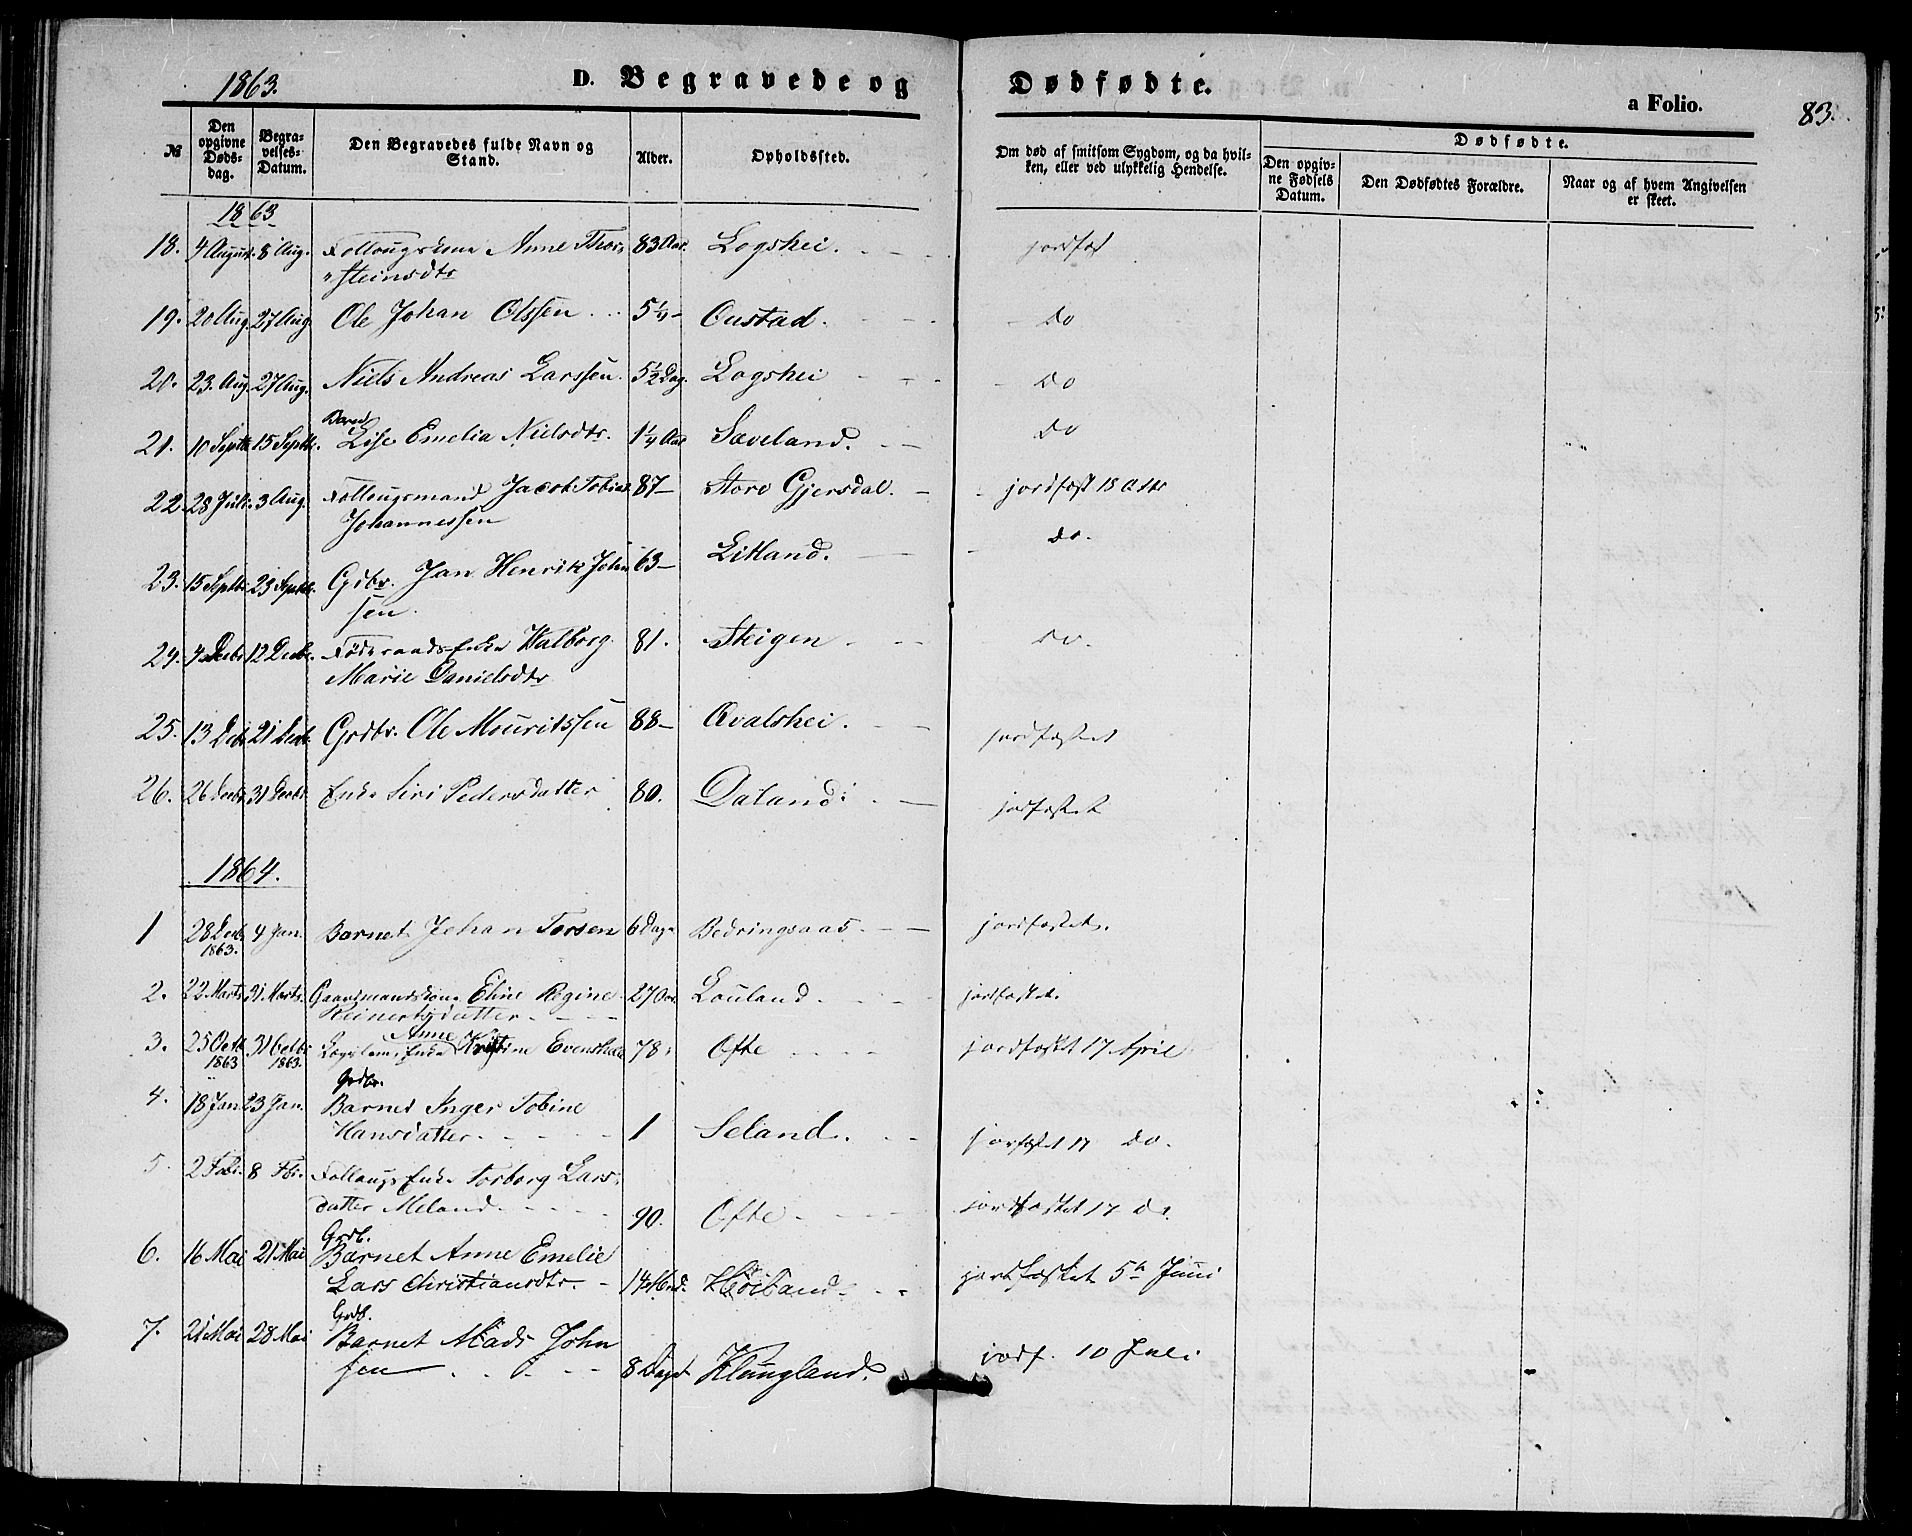 1863. D. Begravede og Dødfødte. a Folio. 83.
№ Den opgivne Døds-dag. Begra-velses-Datum. Den Begravedes fulde Navn og Stand. Alder. Opholdssted. Om død af smitsom Sygdom, og da hvil-ken, eller ved ulykkelig Hendelse. Dødfødte.
Den opgiv-ne Fødsels Datum. Den Dødfødtes Forældre. Naar og af hvem Angivelsen er skeet.
1863
18. 4 August. 8 Aug. Follougskone Anne Thor= 83 Aar. Logshei. jordfæst
"steinsdtr
19. 20 Aug. 27 Aug. Ole Johan Olssen 5 1/4 – Oustad. do
20. 23. Aug. 27 Aug. Niels Andreas Larssen. 5½ Dag. Logshei do
Barnet
21. 10 Septbr 15 Septbr. Lise Emelia Nielsdtr. 1¼ Aar Sæveland. do
22. 28 Juli. 3 Aug. Follougsmand Jacob Tobias 87 – Store Gjersdal. jordfæst 18 Octbr
Johannessen
23. 15 Septbr 23 Septbr. Grdbr. Jan Henrik John 63 – Litland. do.
sen.
24. 4 Decbr 12 Decbr. Føderaads Enke Walborg 81. Steigen do.
Marie Danielsdtr
25. 13 Decbr 21 Decbr. Grdbr. Ole Mouritssen 88 – Qvalshei. jordfæstet
26. 26 Decbr 31 Decbr Enke Siri Pedersdatter 80. Daland. jordfæstet
1864.
1 28 Decbr 4 Jan. Barnet Johan Torsen 6 Dage Bedringsaas jordfæstet.
1863.
2. 22 Marts 31 Marts. Gaardmandskone Eline Regine 27 Aar. Louland. jordfæstet.
Reinertsdatter
Anne
3. 25 Octbr 31 Octbr Lægdslems Enke Kristine Evensdatter 78. Ofte jordfæstet 17 April
1863 1863.
Grdbr.
4. 18 Jan. 23 Jan. Barnet Inger Tobine
Hansdatter. 1 Seland. jorfæstet 17 do.
5. 2 Febr. 8 Fbr. Follougs Enke Torborg Lars=
datter Meland. 90. Ofte jordfæstet 17 do.
Grdb.
6. 16 Mai 21 Mai Barnet Anne Emelie
Lars Christiansdtr. 14 Mnd. Høiland jordfæstet 5te Juni
Grdb.
7. 21 Mai 28 Mai Barnet Mads John
sen 8 Dage Klungland. jordf. 10 Juli